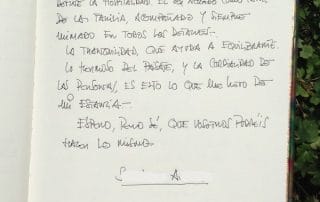 DEFINE LA HOSPITALIDAD. EL
DE LA FAMILIA, ACOMPAÑADO Y SIEMPRE
MIMADO EN TODOS LOS DETALLES.-
LA TRANQUILIDAD, QUE AYUDA A EQUILIBRARTE.
LO HERMOSO DEL PAISAJE, Y LA CORDIALIDAD DE
LAS PERSONAS, ES ESTO LO QUE ME LLEVO DE
MI ESTANCIA.-
ESPERO, PERO SÉ, QUE VOSOTROS PODRÉIS
HACER LO MISMO.